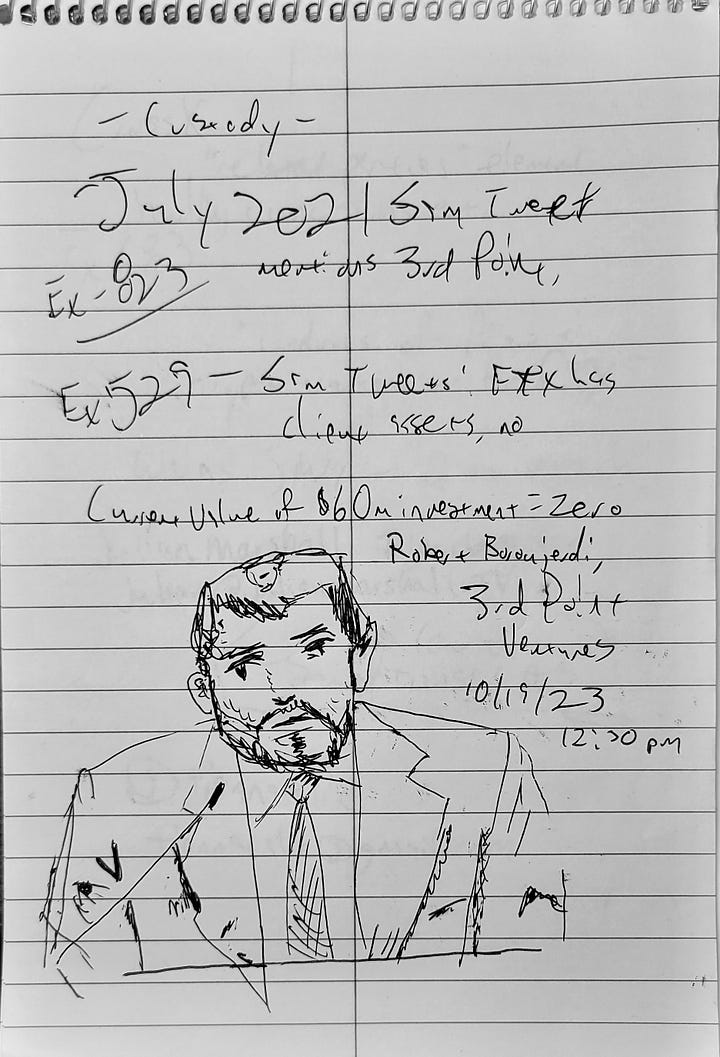 - Custody -
July 2021 Sam Tweet
Ex-823 mentions 3rd Point,
Ex 529 - Sam Tweets: FTX has
client assets, no
Current Value of $60m investment = Zero
Robert Boroujerdi,
3rd Point
Ventures
10/19/23
12:30 pm